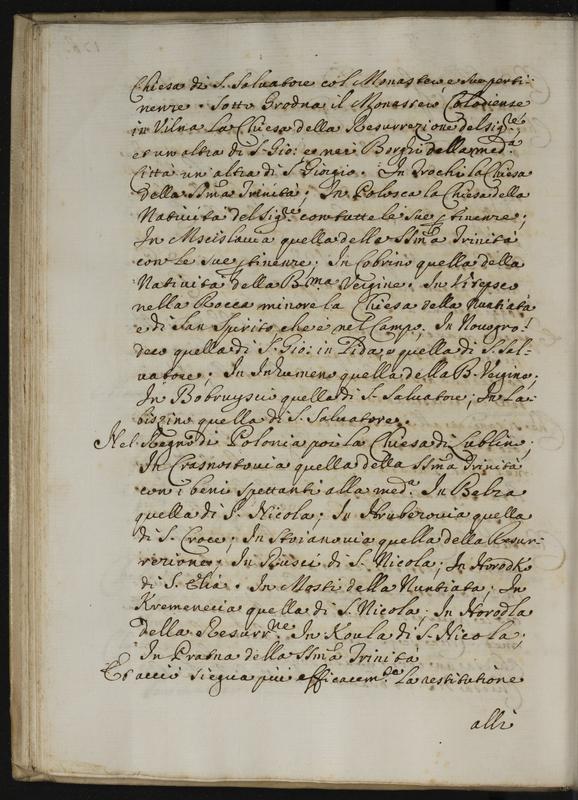 Chiesa di S. Salvatore col Monastero, e sue perti-
nenze. Sotto Grodna il Monasterio Colosiense
in Vilna la Chiesa della Resurrezione del Sig.re,
et un altra di S. Gio: e nei Borghi della med.a
Città un altra di S. Giorgio. In Trochi la Chiesa
della SSma Trinità; In Polosca la Chiesa della
Natività del Sig.re con tutte le Sue ptinenze;
In Mscislavia quella della SSma Trinità
con le Sue ptinenze; In Cobrino quella della
Natività della B.ma Vergine. In Vitepsco
nella Rocca minore la Chiesa della Nuntiata
e di San Spirito che è nel Campo. In Novogro-
deco quella di S. Gio: in Lida, e quella di S. Sal-
vatore; In Inhumen quella della B. Vergine;
In Bobruysci quella di S. Salvatore; In La-
biszino quella di S. Salvatore.
Nel Regno di Polonia poi la Chiesa di Lublino;
In Crasnostovia quella della SSma Trinità
con i beni spettanti alla med.a In Belza
quella di S. Nicola; In Hruberovia quella
di S. Croce; In Stoianovia quella della Resur-
rezione; In Busci di S. Nicola; In Horodk
di S. Elia. In Mosti della Nuntiata; In
Kremenecia quella di S. Nicola; In Horodla
della Resurr.ne In Koula di S. Nicola;
In Pratna della SSma Trinità
Et acciò siegua più efficacem.te la restitutione
alli